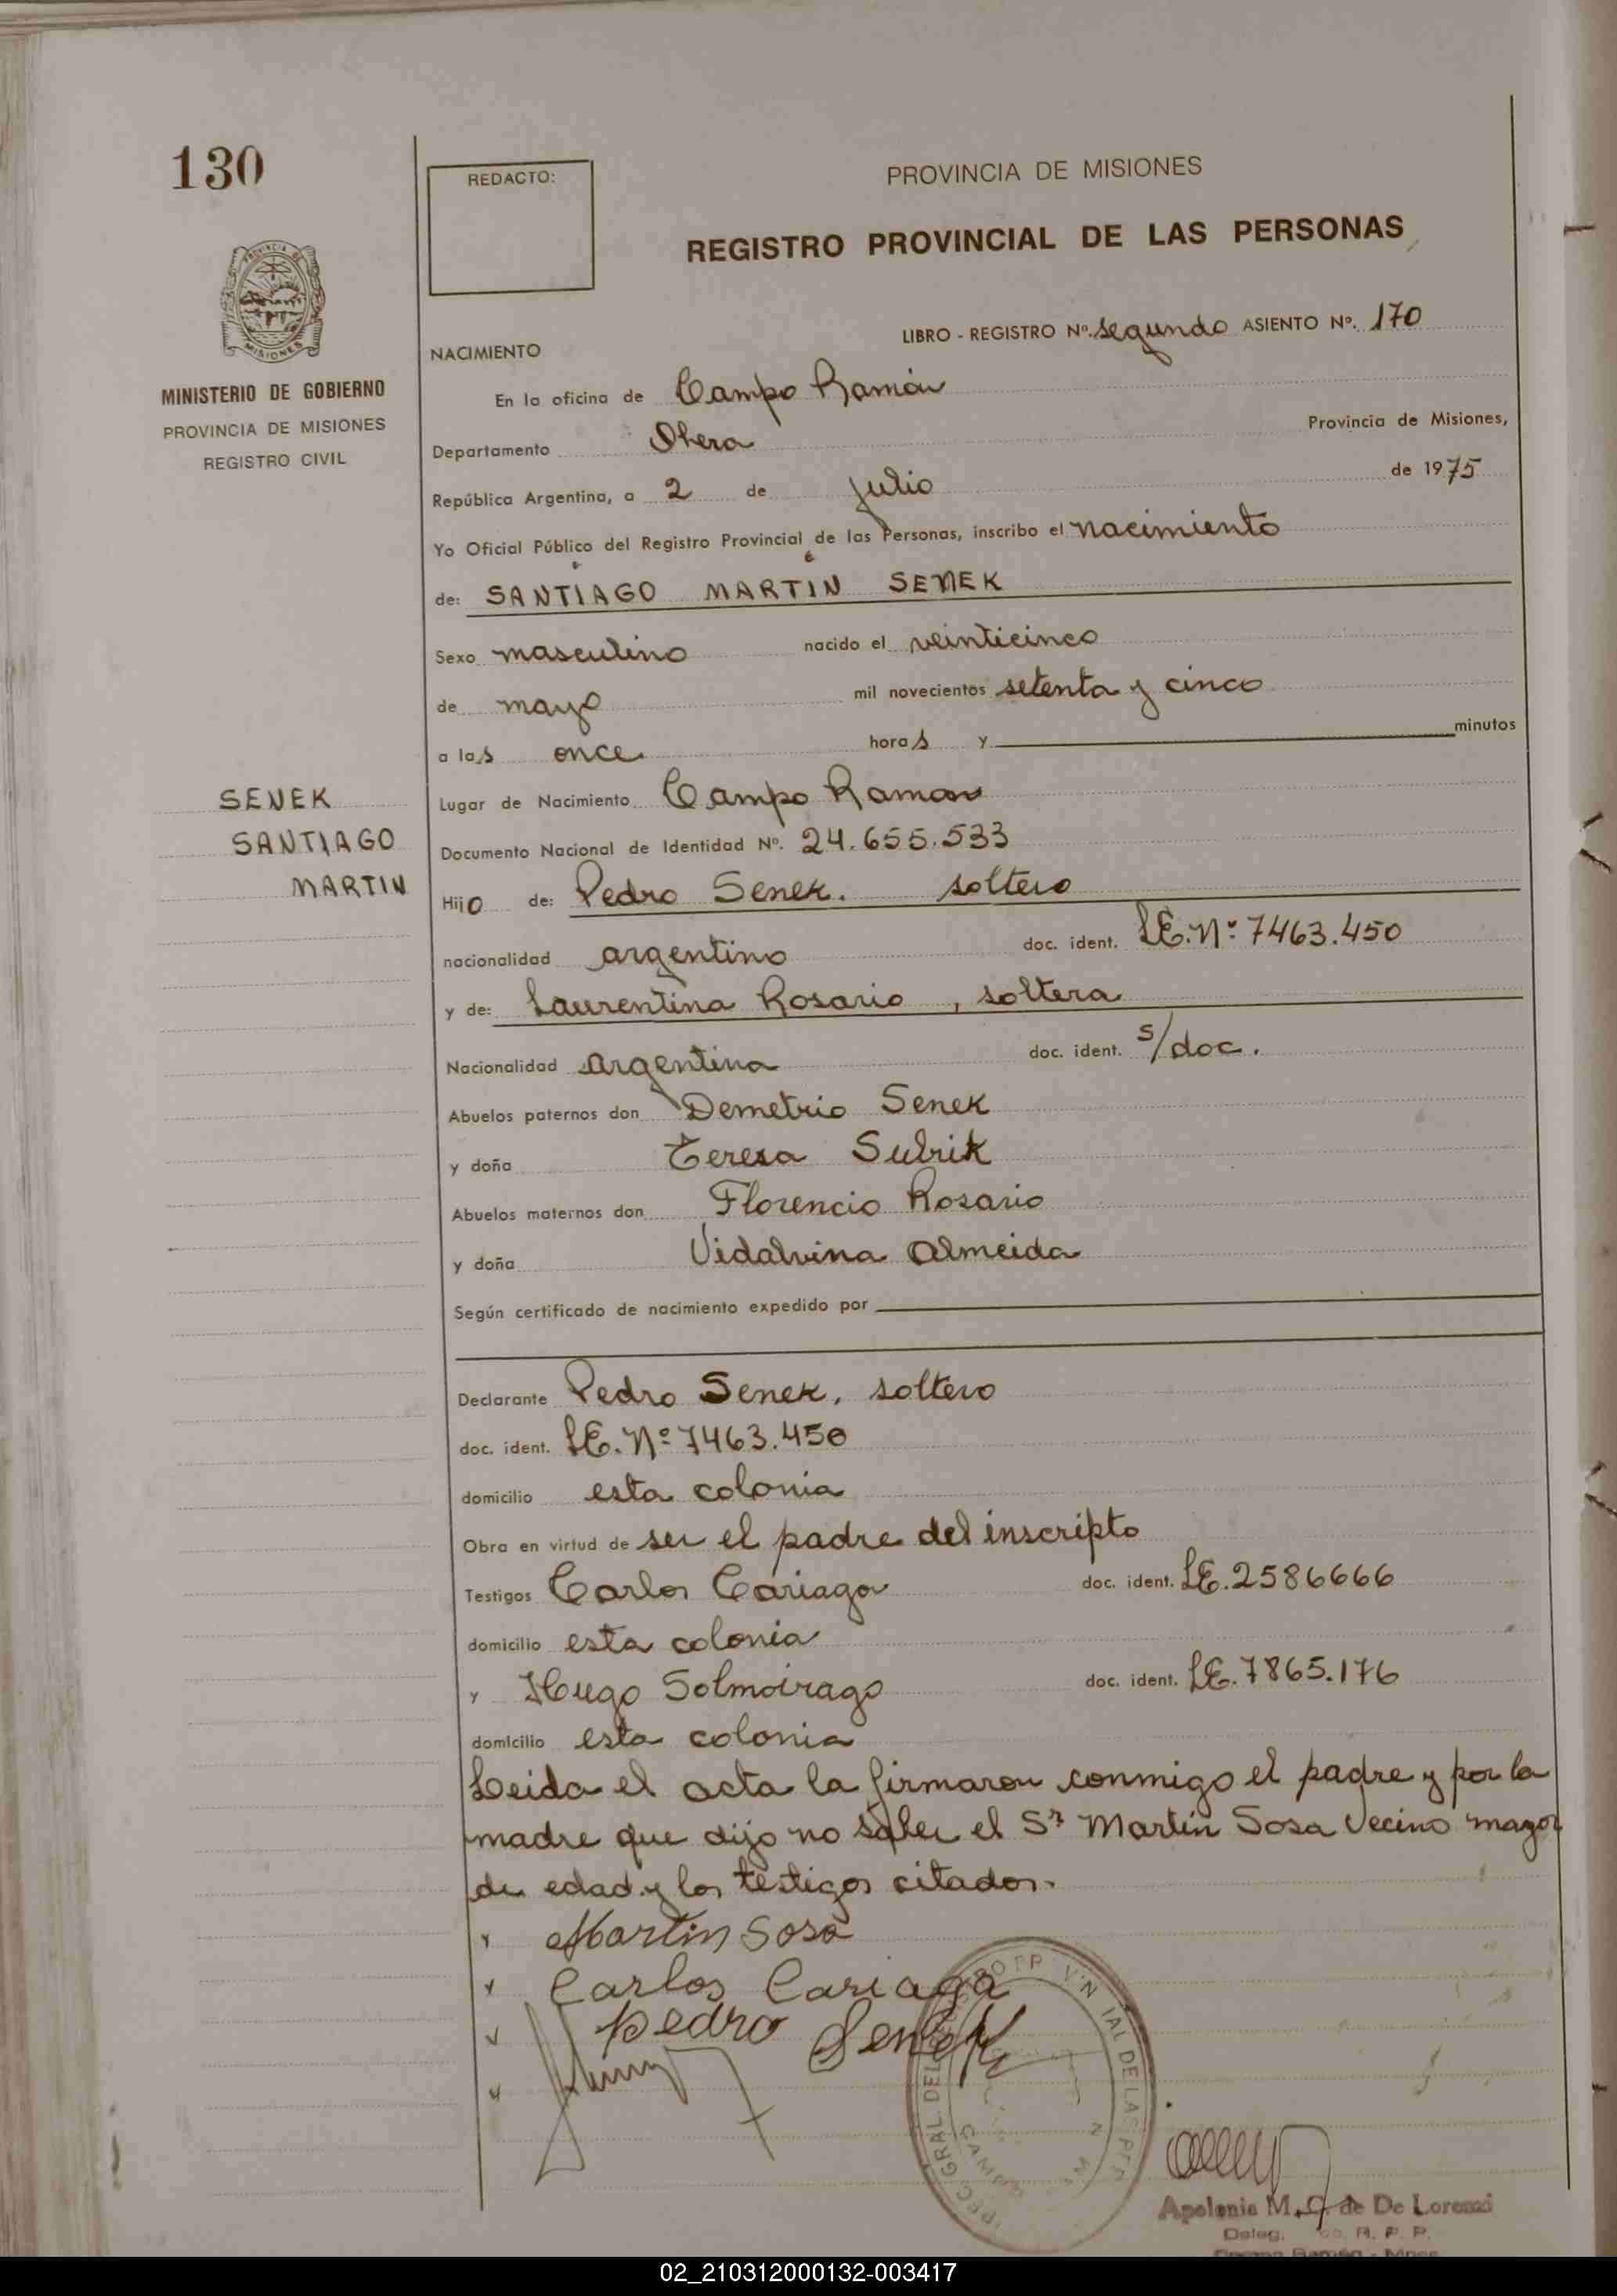 130
REDACTO:
PROVINCIA DE MISIONES
REGISTRO PROVINCIAL DE LAS PERSONAS
MISIONES
MINISTERIO DE GOBIERNO
PROVINCIA DE MISIONES
REGISTRO CIVIL
LIBRO - REGISTRO Nº. segundo ASIENTO Nº. 170
NACIMIENTO
En la oficina de Campo Ramón
Departamento Obera Provincia de Misiones,
República Argentina, a 2 de julio de 1975
Yo Oficial Público del Registro Provincial de las Personas, inscribo el nacimiento
de: SANTIAGO MARTIN SENEK
Sexo masculino nacido el veinticinco
de mayo mil novecientos setenta y cinco
a las once horas y minutos
SENEK
SANTIAGO
MARTIN
Lugar de Nacimiento Campo Ramon
Documento Nacional de Identidad Nº. 24.655.533
Hijo de: Pedro Senek. soltero
nacionalidad argentino doc. ident. LE. Nº 7463.450
y de: Laurentina Rosario, soltera
Nacionalidad argentina doc. ident. s/doc.
Abuelos paternos don Demetrio Senek
y doña Teresa Subrik
Abuelos maternos don Florencio Rosario
y doña Vidalvina Almeida
Según certificado de nacimiento expedido por
Declarante Pedro Senek, soltero
doc. ident. LE. Nº 7463.450
domicilio esta colonia
Obra en virtud de ser el padre del inscripto
Testigos Carlos Cariaga doc. ident. LE. 2586666
domicilio esta colonia
y Hugo Solmoirago doc. ident. LE. 7865.176
domicilio esta colonia
Leida el acta la firmaron conmigo el padre y por la
madre que dijo no saber el Sr Martín Sosa vecino mayor
de edad y los testigos citados.
Martin Sosa
Carlos Cariaga
Pedro Senek
Apolonia M. C. de De Lorenzi
Deleg. R. P. P.
02_210312000132-003417